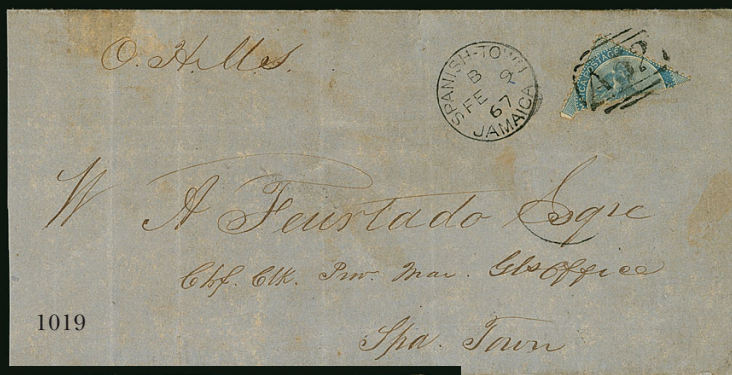 O. H. M. S.
SPANISH-TOWN
B
FE 2
67
JAMAICA
JAMAICA POSTAGE
W A Feurtado Esqre
Chf. Clk. Prov. Mar. Gls Office
Spa. Town
1019